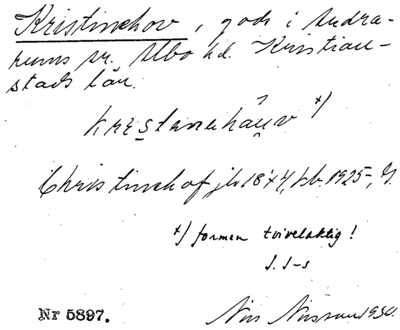 Kristinehov, gods i Andra-
rums sn. Albo hd. Kristian-
stads län.
krɛstanɛhâu̯v x)
Christinehof jb 1844, kb. 1925-,
x) formen tvivelaktig!
J. S-s
Nr 5897. Nils Nilsson 1930.